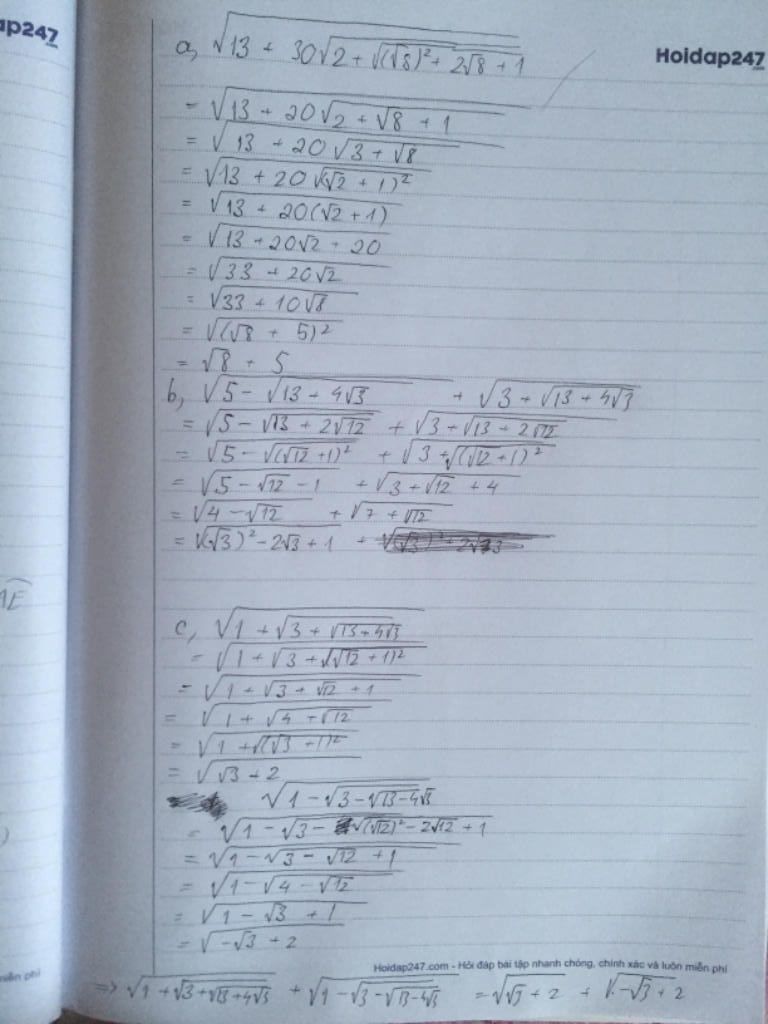 ap247
Hoidap247
.com
a, √(13 + 30√(2 + √((√8)² + 2√8 + 1)))
= √(13 + 20√(2 + √8 + 1))
= √(13 + 20√(3 + √8))
= √(13 + 20√((√2 + 1)²))
= √(13 + 20(√2 + 1))
= √(13 + 20√2 + 20)
= √(33 + 20√2)
= √(33 + 10√8)
= √((√8 + 5)²)
= √8 + 5
b, √(5 - √(13 + 4√3)) + √(3 + √(13 + 4√3))
= √(5 - √(13 + 2√12)) + √(3 + √(13 + 2√12))
= √(5 - √((√12 + 1)²)) + √(3 + √((√12 + 1)²))
= √(5 - √12 - 1) + √(3 + √12 + 4)
= √(4 - √12) + √(7 + √12)
= √((√3)² - 2√3 + 1) +
c, √(1 + √(3 + √(13 + 4√3)))
= √(1 + √(3 + √((√12 + 1)²)))
= √(1 + √(3 + √12 + 1))
= √(1 + √(4 + √12))
= √(1 + √((√3 + 1)²))
= √(√3 + 2)
√(1 - √(3 - √(13 - 4√3)))
= √(1 - √(3 - √((√12)² - 2√12 + 1)))
= √(1 - √(3 - √12 + 1))
= √(1 - √(4 - √12))
= √(1 - √3 + 1)
= √(-√3 + 2)
Hoidap247.com - Hỏi đáp bài tập nhanh chóng, chính xác và luôn miễn phí
miễn phí
=> √(1 + √(3 + √(13 + 4√3))) + √(1 - √(3 - √(13 - 4√3))) = √(√3 + 2) + √(-√3 + 2)